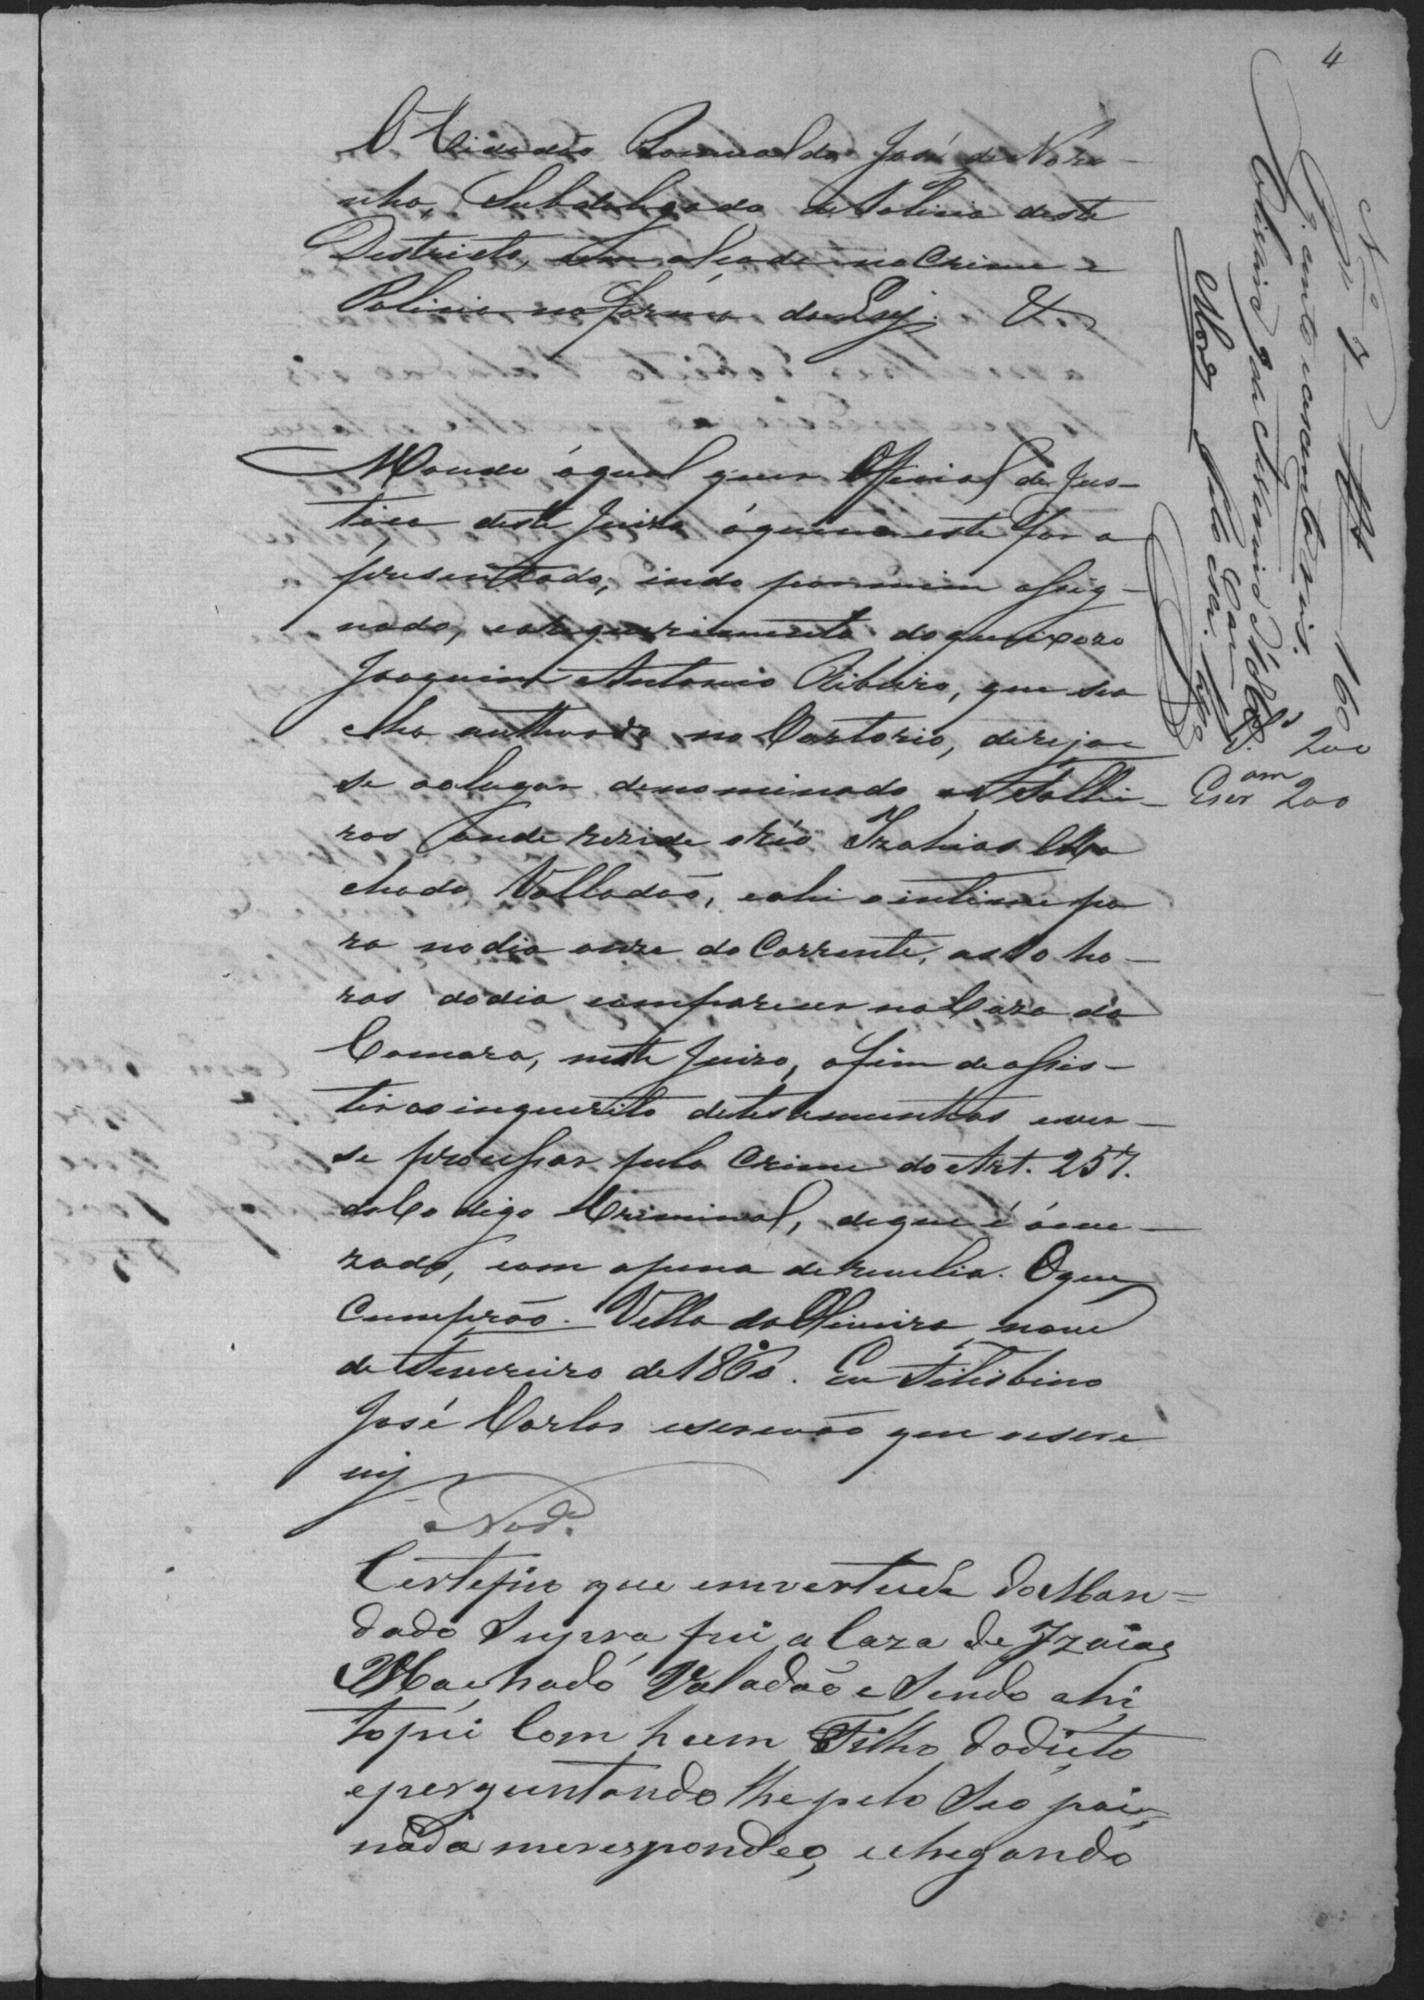 4
O Cidadão Romualdo José de Noro-
nha, Subdelegado de Policia deste
Districto, com alçada no Crime e
Policia na forma da Ley. &
Mando á qual quer Official de Jus-
tiça deste Juizo áquem este for a
presentado, indo por mim assig-
nado, e a requerimento do queixozo
Joaquim Antonio Ribeiro, que se
acha authoado no Cartorio, derija-
se ao lugar denominado os Valli-
ros onde rezide o réo Izahias Ma
chado Valladão, e ahi o intime pa
ra no dia onze do Corrente, as 10 ho-
ras do dia comparecer na Caza da
Camara, neste Juizo, afim de assis-
tir ao inquerito de testemunhas e ver-
se processar pelo Crime do Art. 257.
do Codigo Criminal, de que é acu-
zado, com a pena de revelia. O que
Cumprão. Villa da Oliveira nove
de Fevereiro de 1860. Eu Felisbino
José Carlos escrivão que o escre
vij
Certefico que em vertude do Man=
dado Supra fui a Caza de Izaias
Machado Valadão e Sendo ahi
topei Com hum Filho do dicto
e perguntando lhe pelo Seo pai,
nada me respondeo, e chegando
Nº 7 160
P. cento e secenta reis.
200
Escr am 200